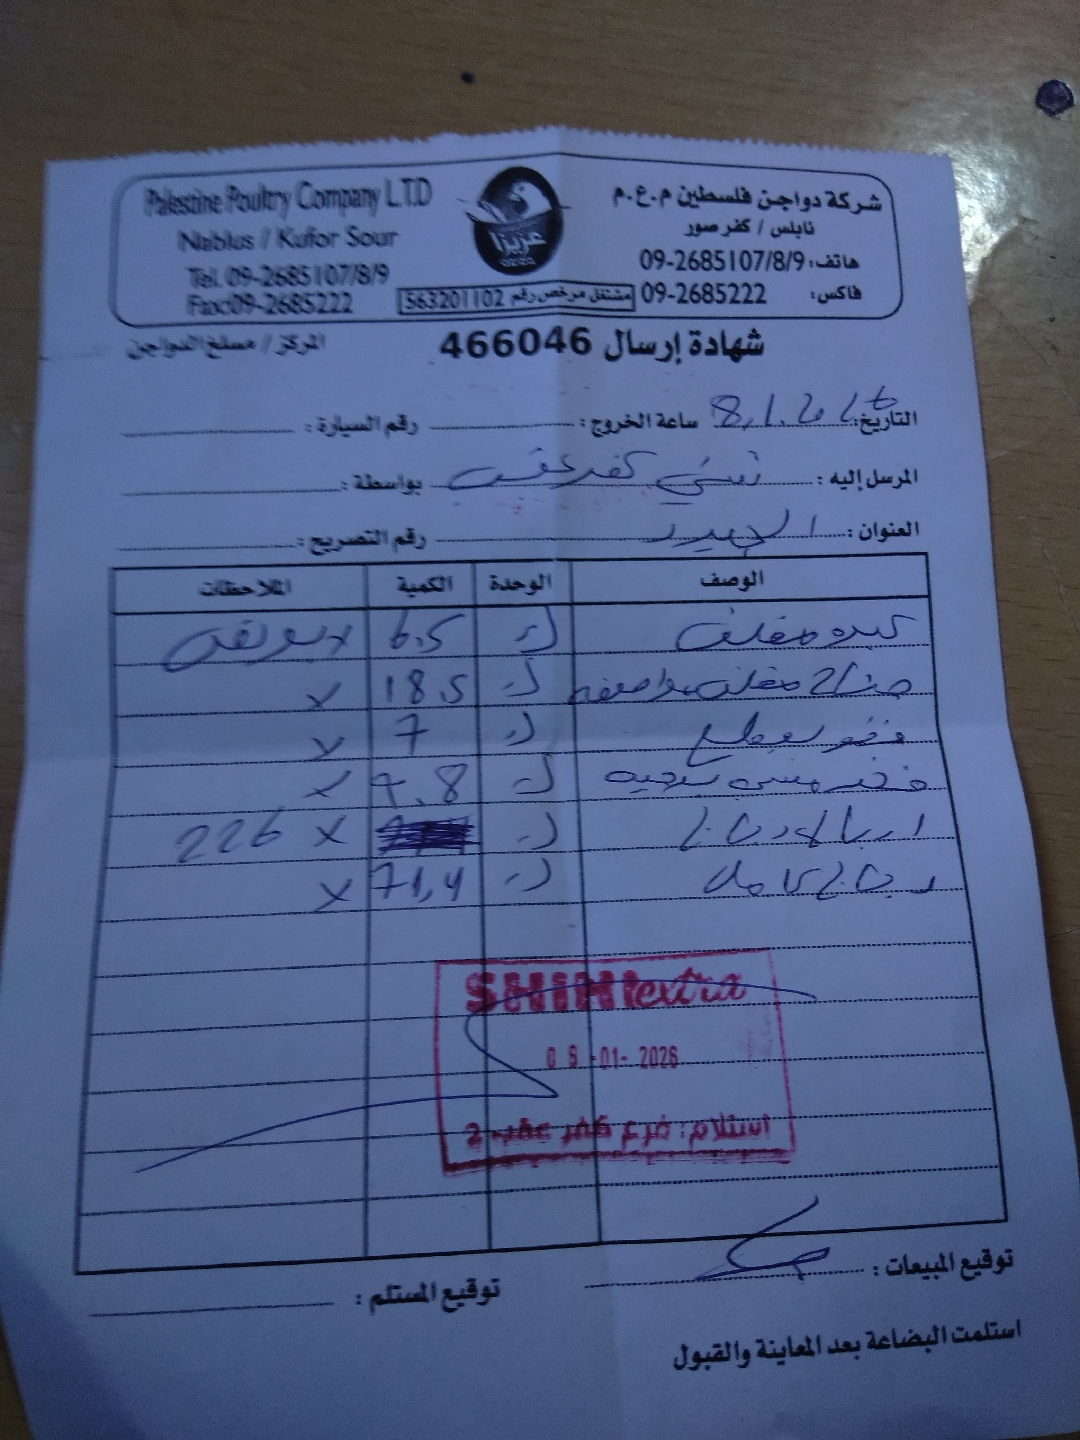 Palestine Poultry Company L.T.D
Nablus / Kufor Sour
Tel. 09-2685107/8/9
Fax:09-2685222
عزيزا
شركة دواجن فلسطين م.ع.م
نابلس / كفر صور
هاتف: 09-2685107/8/9
فاكس: 09-2685222
مشتغل مرخص رقم 563201102
شهادة إرسال 466046
المركز / مسلخ الدواجن
التاريخ: 8.1.2026 ساعة الخروج: رقم السيارة:
المرسل إليه: شني كفر عقب بواسطة:
العنوان: رقم التصريح:
الوصف الوحدة الكمية الملاحظات
كبده مغلف ك 6.5
مغلف ك 18.5 x
ك 7 x
فخذ ك 7.8 x
ك x 226
ك 71,4 x
SHINI extra
-01- 2026
استلام: فرع كفر عقب 2
توقيع المبيعات: توقيع المستلم:
استلمت البضاعة بعد المعاينة والقبول